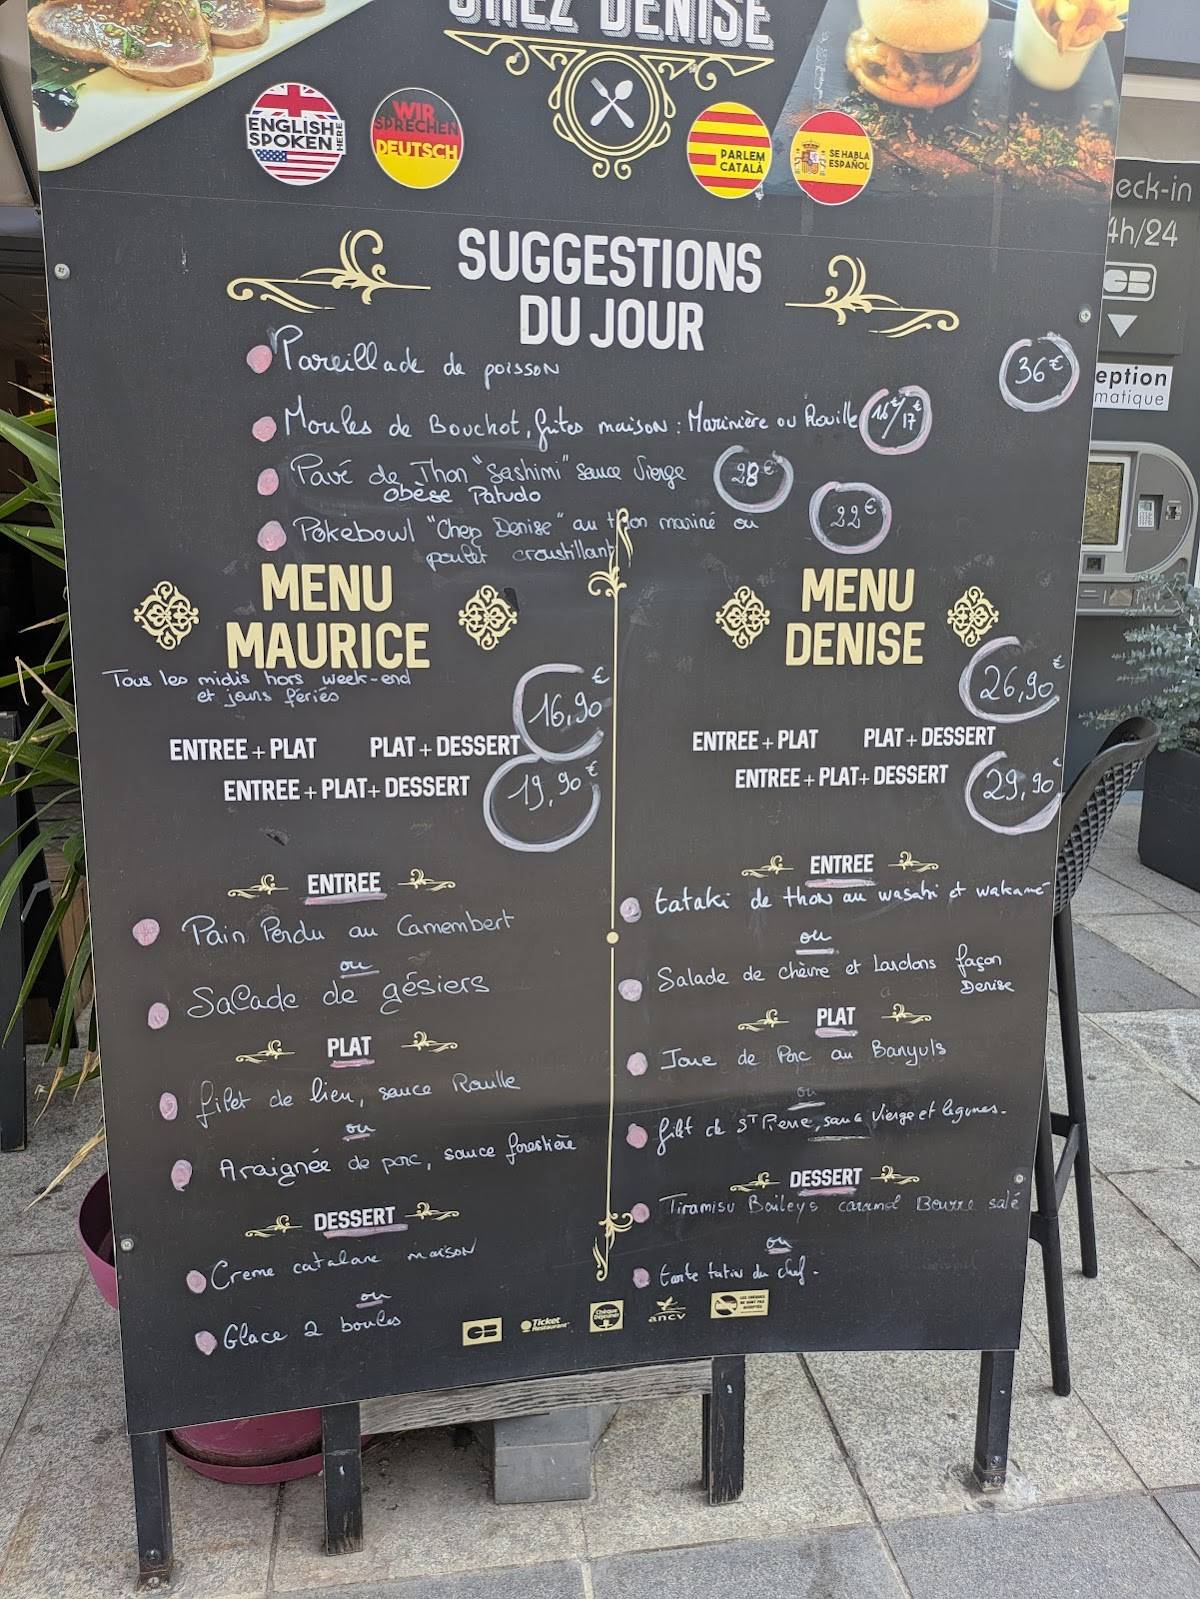 CHEZ DENISE
ENGLISH SPOKEN HERE
WIR SPRECHEN DEUTSCH
PARLEM CATALÀ
SE HABLA ESPAÑOL
eck-in
4h/24
CB
eption
matique
SUGGESTIONS
DU JOUR
Pareillade de poisson 36€
Moules de Bouchot, frites maison : Marinière ou Rouille 16€/17€
Pavé de Thon "Sashimi" sauce Vierge 28€
obèse Patudo
Pokebowl "Chez Denise" au thon mariné ou 22€
poulet croustillant
MENU
MAURICE
Tous les midis hors week-end
et jours fériés
16,90€
ENTREE + PLAT PLAT + DESSERT
ENTREE + PLAT + DESSERT 19,90€
ENTREE
Pain Perdu au Camembert
ou
Salade de gésiers
PLAT
filet de lieu, sauce Rouille
ou
Araignée de porc, sauce forestière
DESSERT
Creme catalane maison
ou
Glace 2 boules
MENU
DENISE
26,90€
ENTREE + PLAT PLAT + DESSERT
ENTREE + PLAT + DESSERT 29,90€
ENTREE
tataki de thon au wasabi et wakamé
ou
Salade de chèvre et Lardons façon
Denise
PLAT
Joue de Porc au Banyuls
ou
filet de ST Pierre, sauce Vierge et legumes.
DESSERT
Tiramisu Baileys caramel Beurre salé
ou
tarte tatin du chef.
CB
Ticket Restaurant
Chèque Déjeuner
ancv
LES CHÈQUES NE SONT PAS ACCEPTÉS